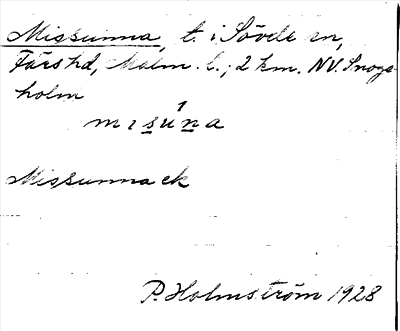 Missunna, t. i Sövde sn,
Färs hd, Malm. l.; 2 km. NV. Snoge-
holm
mısúna
Missunna ek
P. Holmström 1928